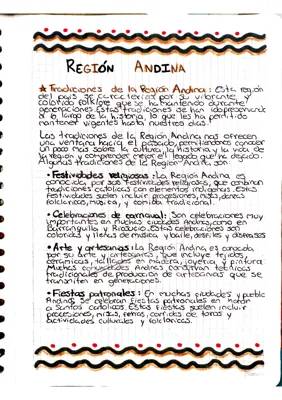 REGIÓN ANDINA
★ Tradiciones de la Región Andina: Esta región
del país se caracteriza por su vibrante y
colorido folklore que se ha mantenido durante
generaciones Estas tradiciones se han
a lo largo de la historia, lo que les ha permitido
mantener vigentes hasta nuestros días.
Las tradiciones de la Región Andina nos ofrecen
una ventana hacia el pasado, permitiendonos conocer
un poco más sobre la cultura, la historia y la vida de
la región y comprender mejor el legado que ha dejado.
Algunas tradiciones de la Región Andina son:
• Festividades religiosas: La Región Andina es
conocida por sus festividades religiosas, que combinan
tradiciones católicas con elementos indígenas. Estas
festividades suelen incluir procesiones, misas, danzas
folclóricas, música, y comida tradicional.
• Celebraciones de carnaval: Son celebraciones muy
importantes en muchas ciudades Andinas, como en
Barranquilla y Riosucio. Estas celebraciones son
coloridas, y llenas de música, y baile, desfiles y disfraces
• Arte y artesanías: La Región Andina es conocida
por su arte y artesanías, que incluye tejidos,
cerámicas, tallados en madera, joyería y pintura.
Muchas comunidades Andinas conservan técnicas
tradicionales de producción de artesanías que se
transmiten en generaciones.
• Fiestas patronales: En muchas ciudades y pueblos
Andinos se celebran fiestas patronales en honor
a santos católicos. Estas fiestas suelen incluir
procesiones, misas, ferias, corridas de toros y
actividades culturales y folclóricas.